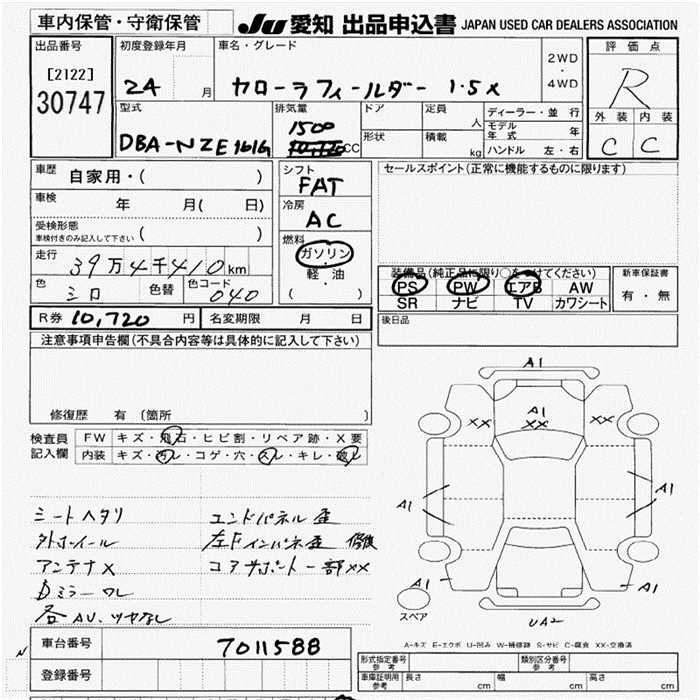 車内保管・守衛保管
JU 愛知 出品申込書 JAPAN USED CAR DEALERS ASSOCIATION
出品番号
[2122]
30747
初度登録年月
24 月
車名・グレード
カローラフィールダー 1.5X
2WD
・
4WD
評価点
R
外装 内装
C C
型式
DBA-NZE161G
排気量
1500
CC
ドア
形状
定員
人
積載
kg
ディーラー・並行
モデル年式 年
ハンドル 左・右
車歴
自家用・( )
車検
年 月( 日)
受検形態
車検付きのみ記入して下さい ( )
走行
39万4千410km
色
シロ
色替
色コード
040
シフト
FAT
冷房
AC
燃料
ガソリン
・
軽油
( )
セールスポイント(正常に機能するものに限ります)
装備品(純正品に限り○をつけてください)
PS PW エアB AW
SR ナビ TV カワシート
新車保証書
有・無
後日品
R券 10,720 円
名変期限 月 日
注意事項申告欄(不具合内容等は具体的に記入して下さい)
修復歴 有 〔箇所 〕
検査員
記入欄
FW キズ・飛石・ヒビ割・リペア跡・X要
内装 キズ・汚レ・コゲ・穴・スレ・キレ・破レ
シートヘタリ
外ホイール
アンテナX
Dミラーワレ
各AU、ツヤなし
エンドパネル歪
左Fインパネ歪 修復
コアサポート一部XX
A1
XX
A1
XX
XX
A1
A1
A1
A1
UA2
スペア
A-キズ E-エクボ U-凹み W-補修跡 S-サビ C-腐食 XX-交換済
車台番号
7011588
登録番号
N
型式指定番号
参考
類別区分番号
参考
車庫証明用
参考
長さ cm
幅 cm
高さ cm